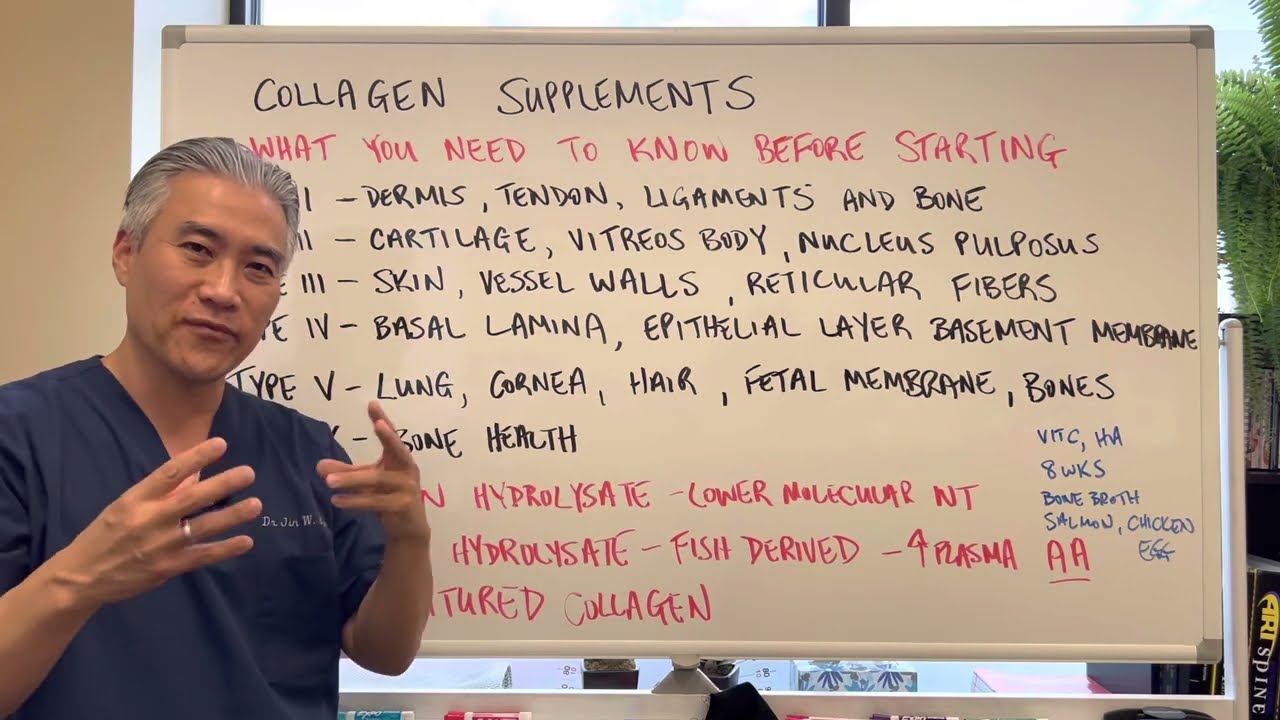 COLLAGEN SUPPLEMENTS
WHAT YOU NEED TO KNOW BEFORE STARTING
I – DERMIS, TENDON, LIGAMENTS AND BONE
II – CARTILAGE, VITREOS BODY, NUCLEUS PULPOSUS
E III – SKIN, VESSEL WALLS, RETICULAR FIBERS
PE IV – BASAL LAMINA, EPITHELIAL LAYER BASEMENT MEMBRANE
TYPE V – LUNG, CORNEA, HAIR, FETAL MEMBRANE, BONES
– BONE HEALTH
N HYDROLYSATE – LOWER MOLECULAR WT
HYDROLYSATE – FISH DERIVED – ↑ PLASMA AA
TURED COLLAGEN
VIT C, HA
8 WKS
BONE BROTH
SALMON, CHICKEN
EGG
Dr. Jin W.
ARI SPINE